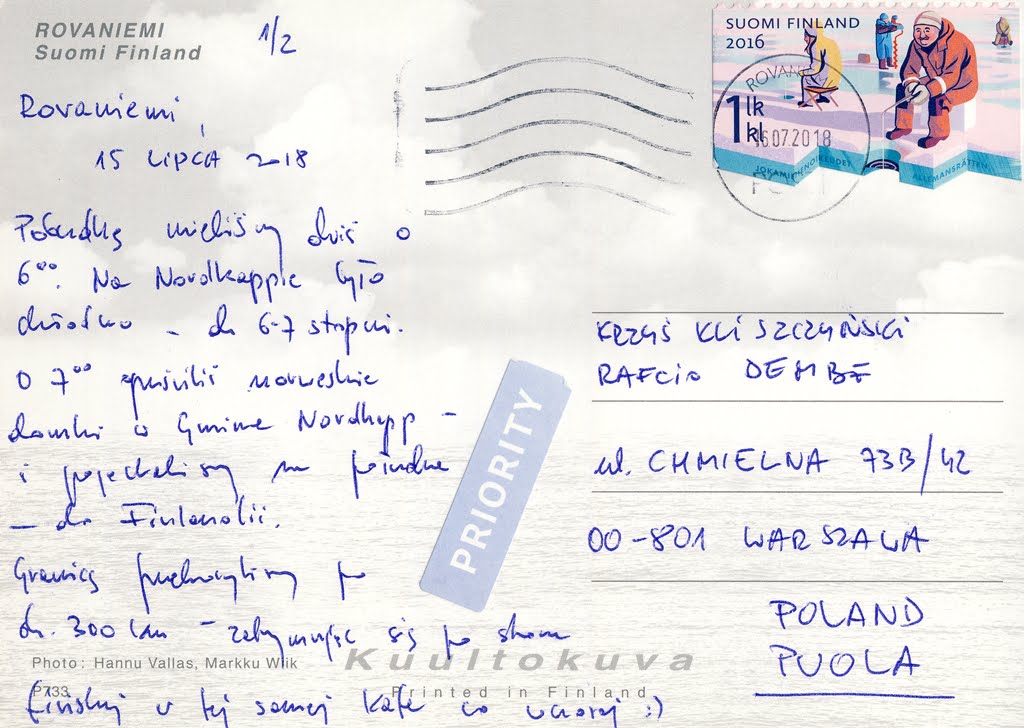 ROVANIEMI
Suomi Finland
1/2
SUOMI FINLAND
2016
1 lk
kl
ROVANIEMI
16.07.2018
JOKAMIEHENOIKEUDET
ALLEMANSRÄTTEN
Rovaniemi,
15 LIPCA 2018
Pobudkę mieliśmy dziś o
6⁰⁰. Na Nordkappie było
chłodno – ok 6-7 stopni.
O 7⁰⁰ opuściliś norweskie
domki w Gminie Nordkapp –
i pojechaliśmy na południe
– do Finlandii.
Granicę przekroczyliśmy po
ok. 300 km – zatrzymując się po stronie
fińskiej w tej samej kafe co wczoraj :)
PRIORITY
KRZYŚ KLISZCZYŃSKI
RAFCIO DEMBE
ul. CHMIELNA 73B/42
00-801 WARSZAWA
POLAND
PUOLA
Photo: Hannu Vallas, Markku Wiik
Kuultokuva
P733
Printed in Finland